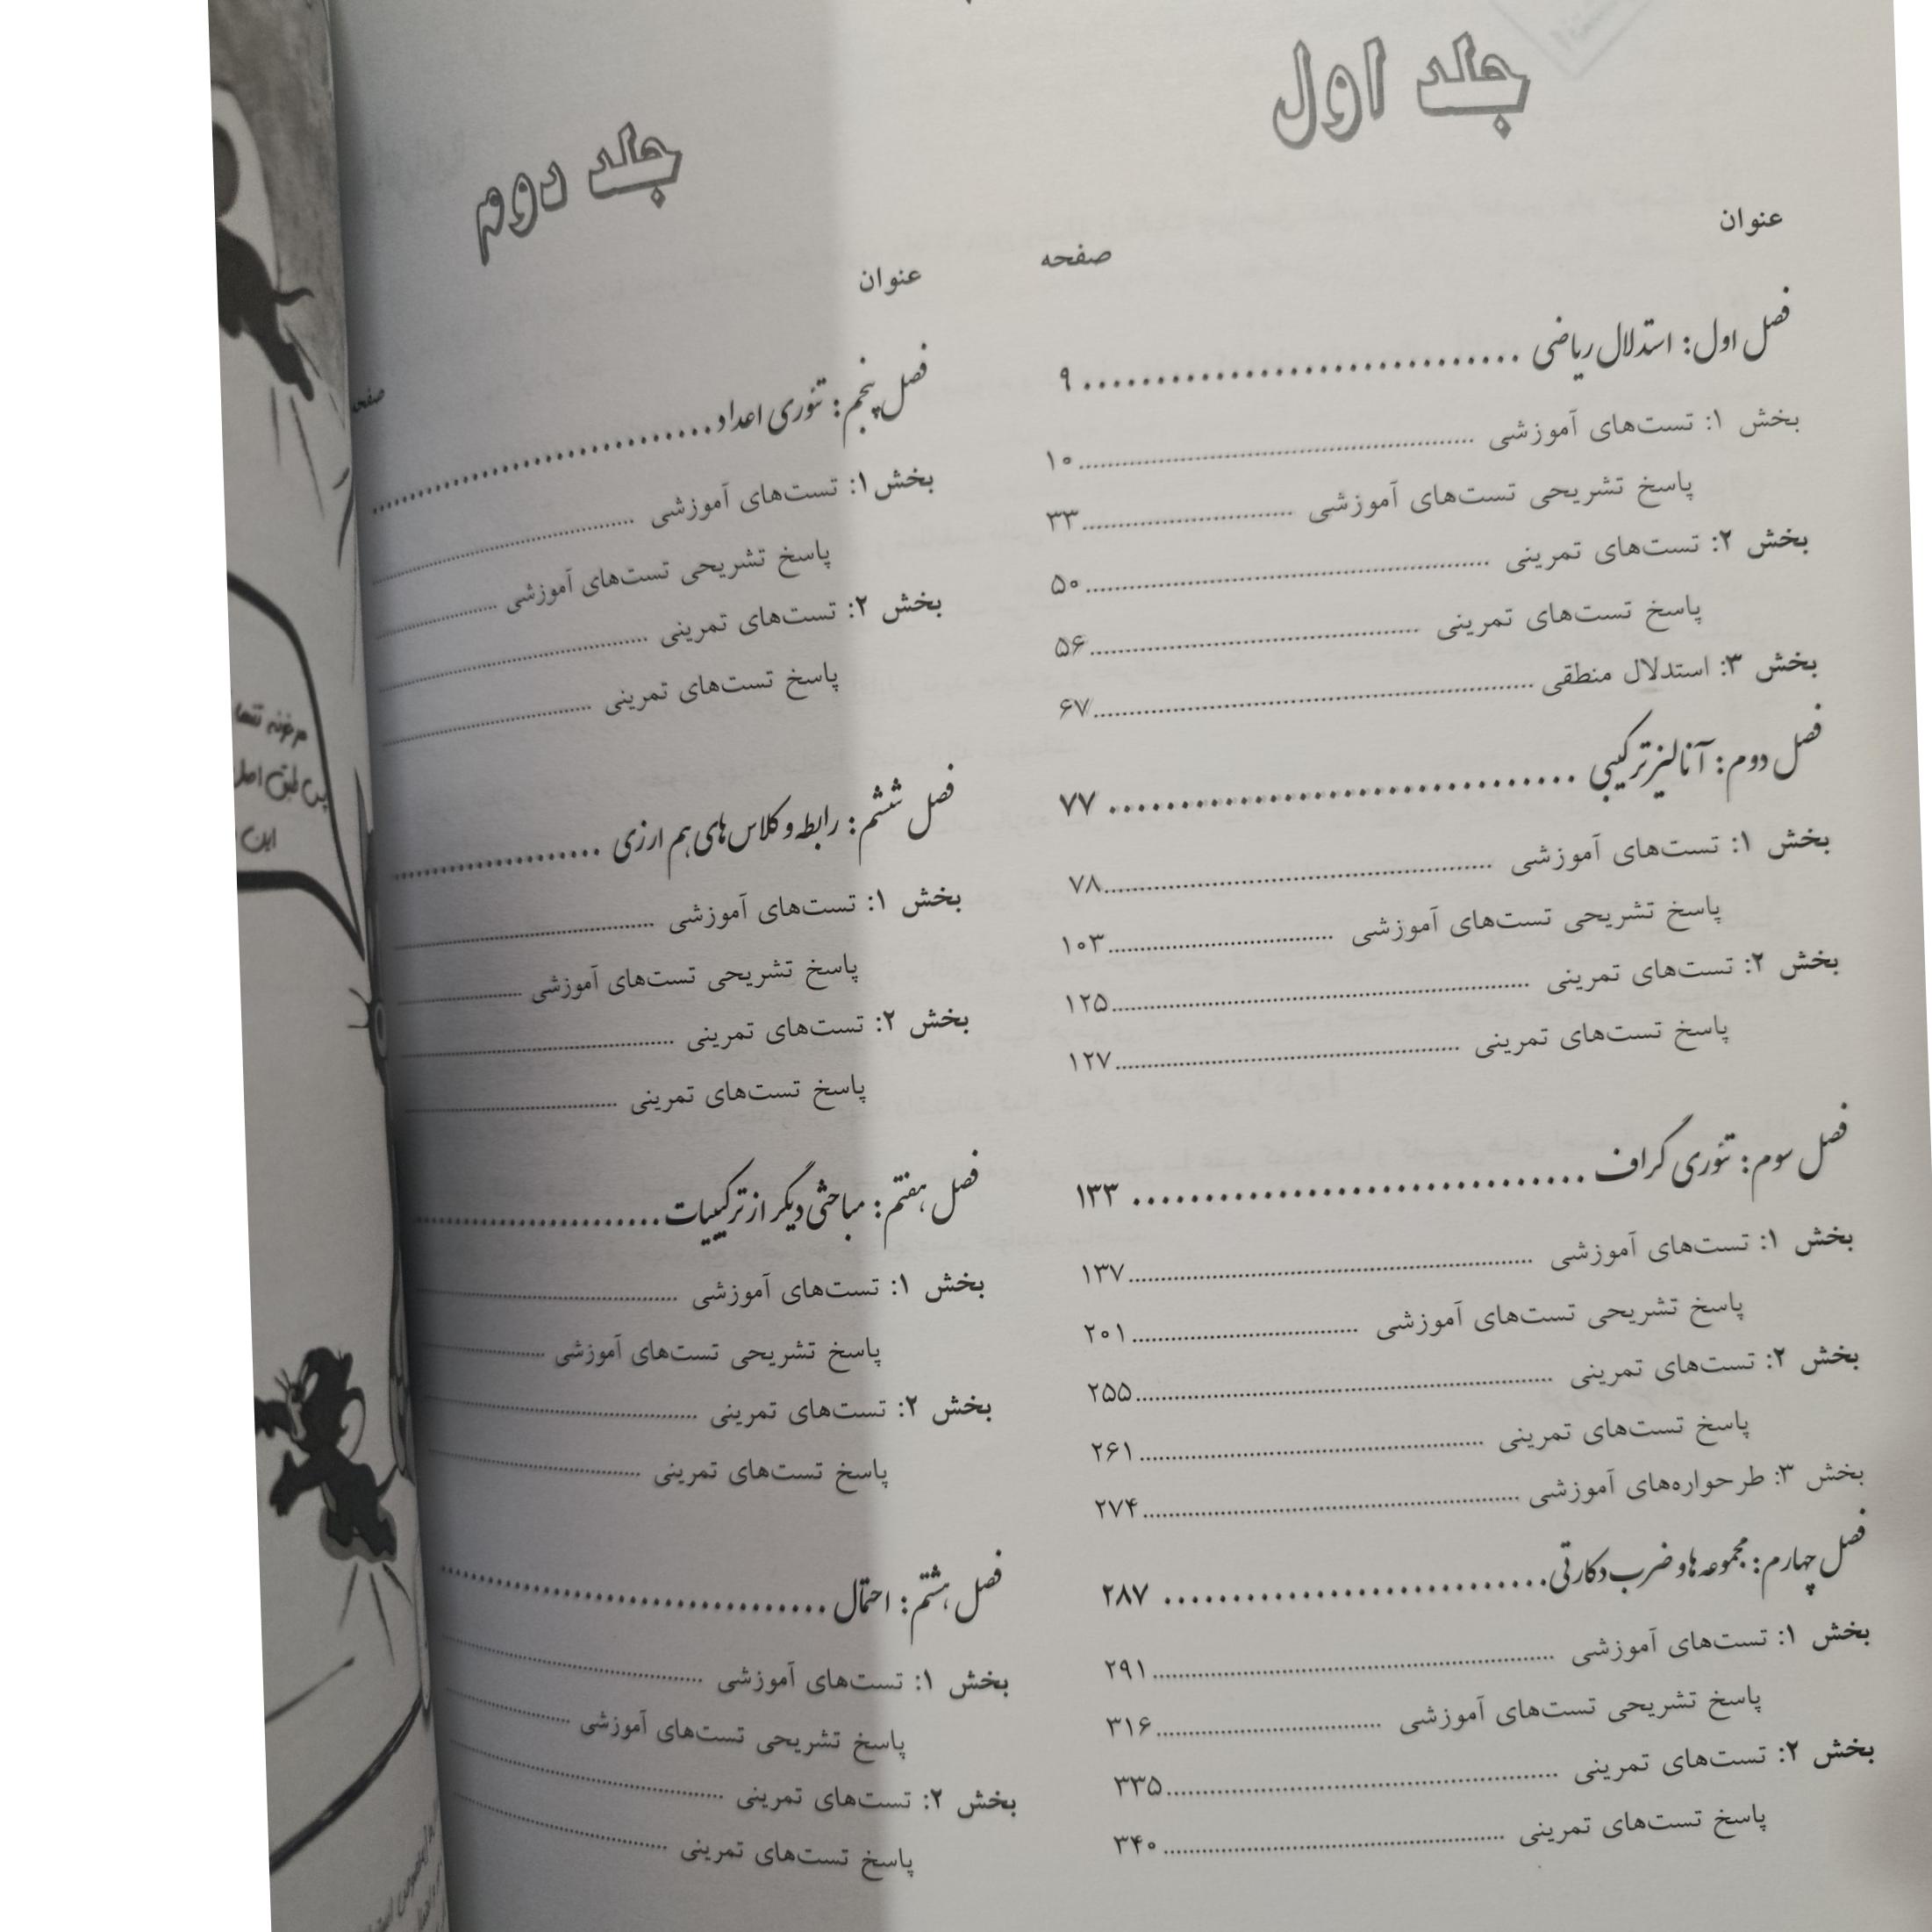 جلد اول
عنوان
صفحه
فصل اول: استدلال ریاضی .............................. ۹
بخش ۱: تست‌های آموزشی .............................. ۱۰
پاسخ تشریحی تست‌های آموزشی .............................. ۳۳
بخش ۲: تست‌های تمرینی .............................. ۵۰
پاسخ تست‌های تمرینی .............................. ۵۶
بخش ۳: استدلال منطقی .............................. ۶۷
فصل دوم: آنالیز ترکیبی .............................. ۷۷
بخش ۱: تست‌های آموزشی .............................. ۷۸
پاسخ تشریحی تست‌های آموزشی .............................. ۱۰۳
بخش ۲: تست‌های تمرینی .............................. ۱۲۵
پاسخ تست‌های تمرینی .............................. ۱۲۷
فصل سوم: تئوری گراف .............................. ۱۳۳
بخش ۱: تست‌های آموزشی .............................. ۱۳۷
پاسخ تشریحی تست‌های آموزشی .............................. ۲۰۱
بخش ۲: تست‌های تمرینی .............................. ۲۵۵
پاسخ تست‌های تمرینی .............................. ۲۶۱
بخش ۳: طرحواره‌های آموزشی .............................. ۲۷۴
فصل چهارم: مجموعه‌ها و ضرب دکارتی .............................. ۲۸۷
بخش ۱: تست‌های آموزشی .............................. ۲۹۱
پاسخ تشریحی تست‌های آموزشی .............................. ۳۱۶
بخش ۲: تست‌های تمرینی .............................. ۳۳۵
پاسخ تست‌های تمرینی .............................. ۳۴۰
جلد دوم
عنوان
صفحه
فصل پنجم: تئوری اعداد ..............................
بخش ۱: تست‌های آموزشی ..............................
پاسخ تشریحی تست‌های آموزشی ..............................
بخش ۲: تست‌های تمرینی ..............................
پاسخ تست‌های تمرینی ..............................
فصل ششم: رابطه و کلاس‌های هم ارزی ..............................
بخش ۱: تست‌های آموزشی ..............................
پاسخ تشریحی تست‌های آموزشی ..............................
بخش ۲: تست‌های تمرینی ..............................
پاسخ تست‌های تمرینی ..............................
فصل هفتم: مباحثی دیگر از ترکیبیات ..............................
بخش ۱: تست‌های آموزشی ..............................
پاسخ تشریحی تست‌های آموزشی ..............................
بخش ۲: تست‌های تمرینی ..............................
پاسخ تست‌های تمرینی ..............................
فصل هشتم: احتمال ..............................
بخش ۱: تست‌های آموزشی ..............................
پاسخ تشریحی تست‌های آموزشی ..............................
بخش ۲: تست‌های تمرینی ..............................
پاسخ تست‌های تمرینی ..............................
تنها
طبق اصل
این